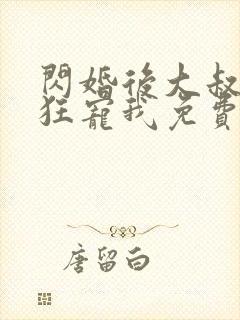 閃婚後大叔
狂寵我免費
唐留白